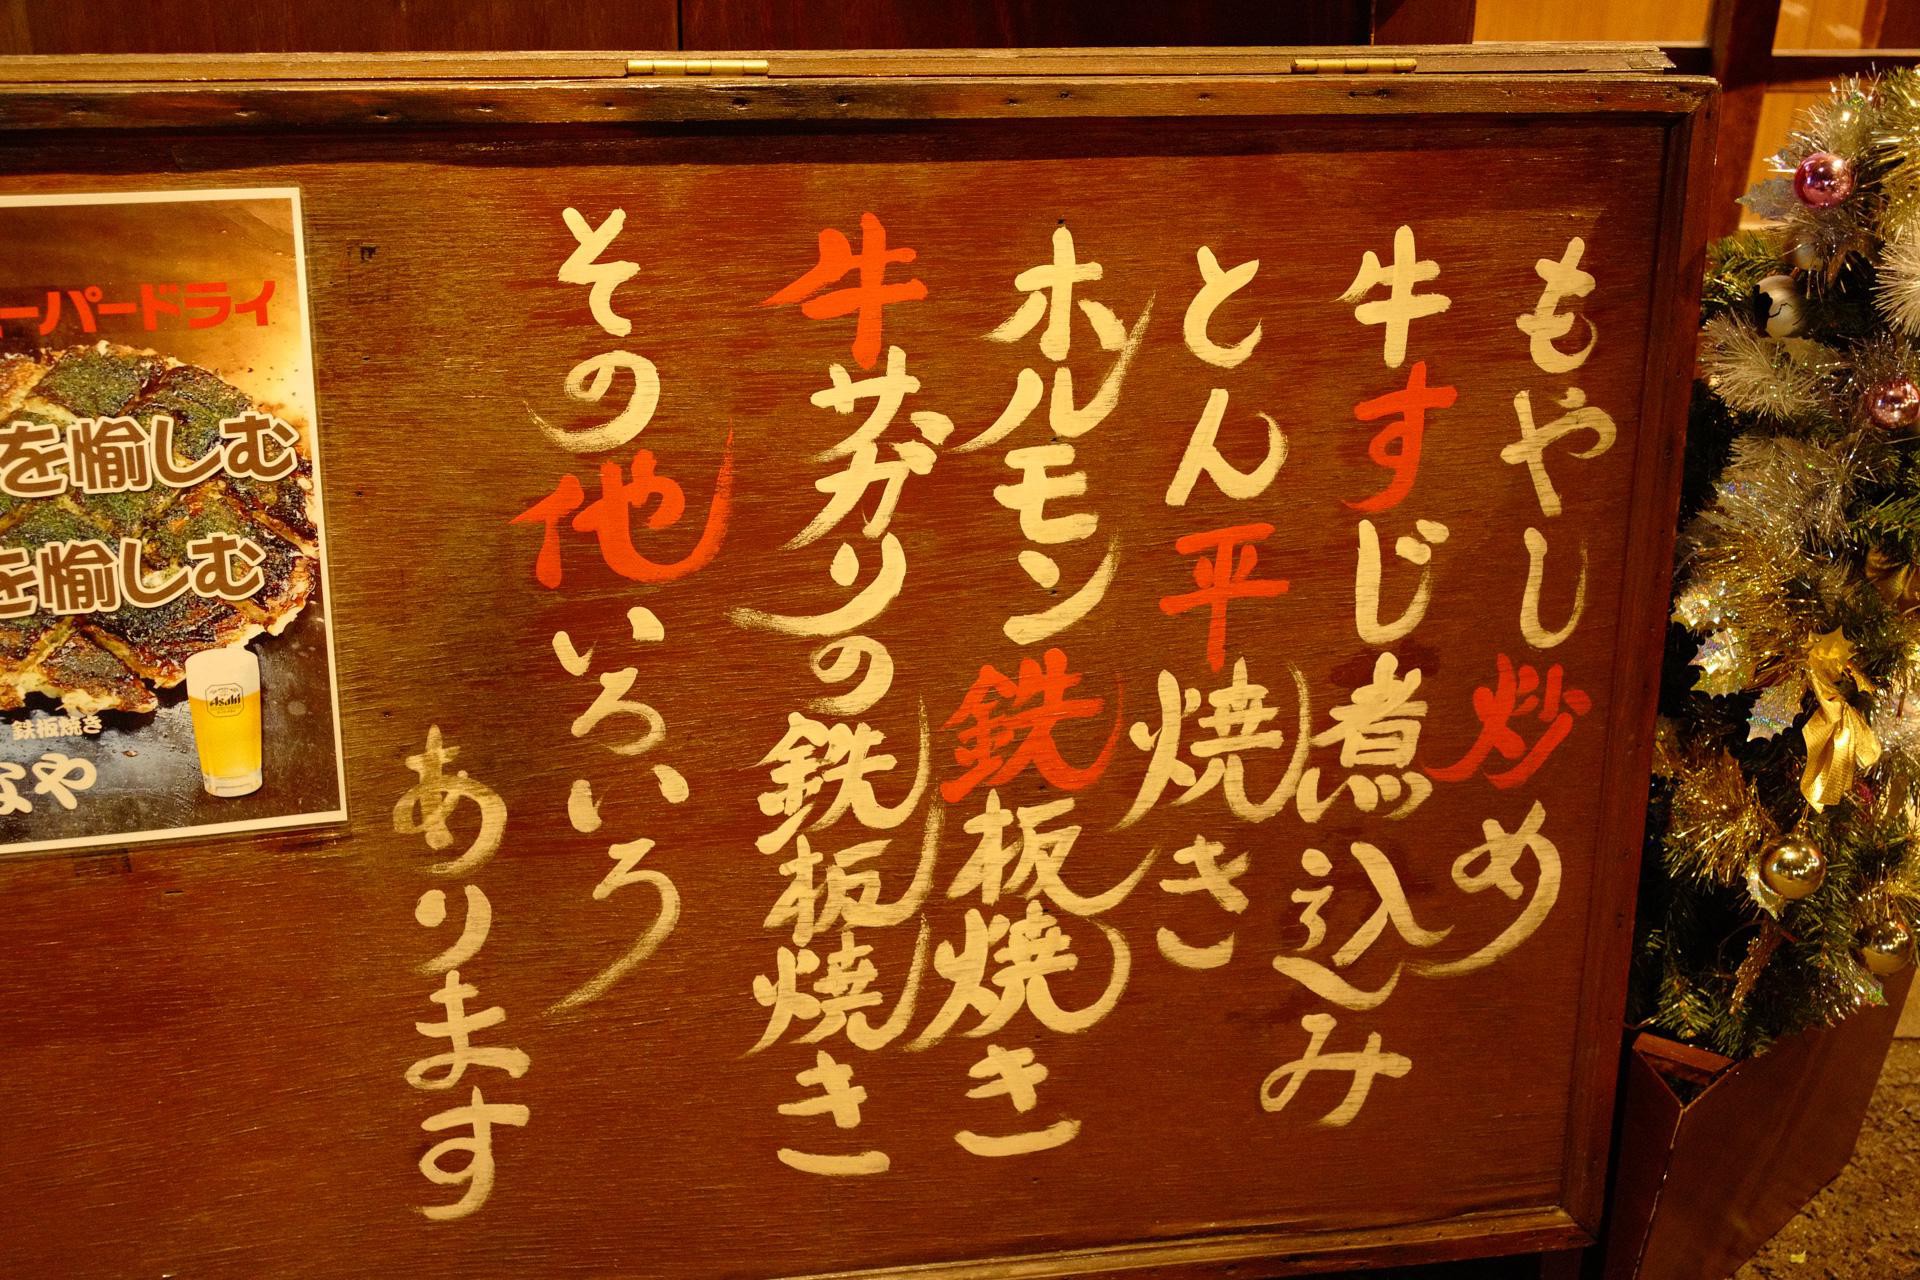 もやし炒め
牛すじ煮込み
とん平焼き
ホルモン鉄板焼き
牛サガリの鉄板焼き
その他いろいろ
あります
ーパードライ
を愉しむ
を愉しむ
Asahi
鉄板焼き
なや